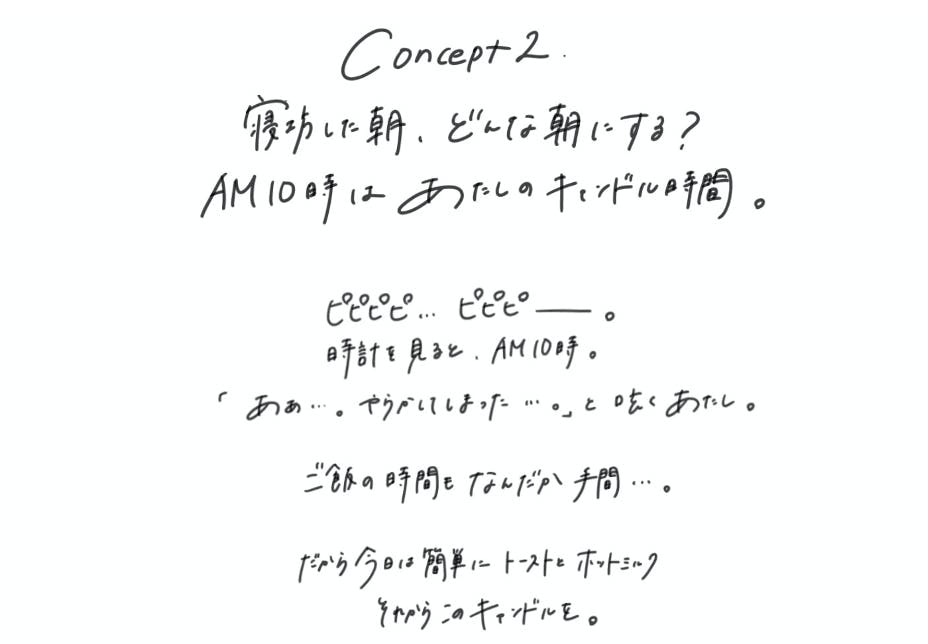 Concept 2.
寝坊した朝、どんな朝にする?
AM10時はあたしのキャンドル時間。
ピピピピ… ピピピ――。
時計を見ると、AM10時。
「あぁ…。やらかしてしまった…。」と呟くあたし。
ご飯の時間もなんだか手間…。
だから今日は簡単にトーストとホットミルク
それからこのキャンドルを。